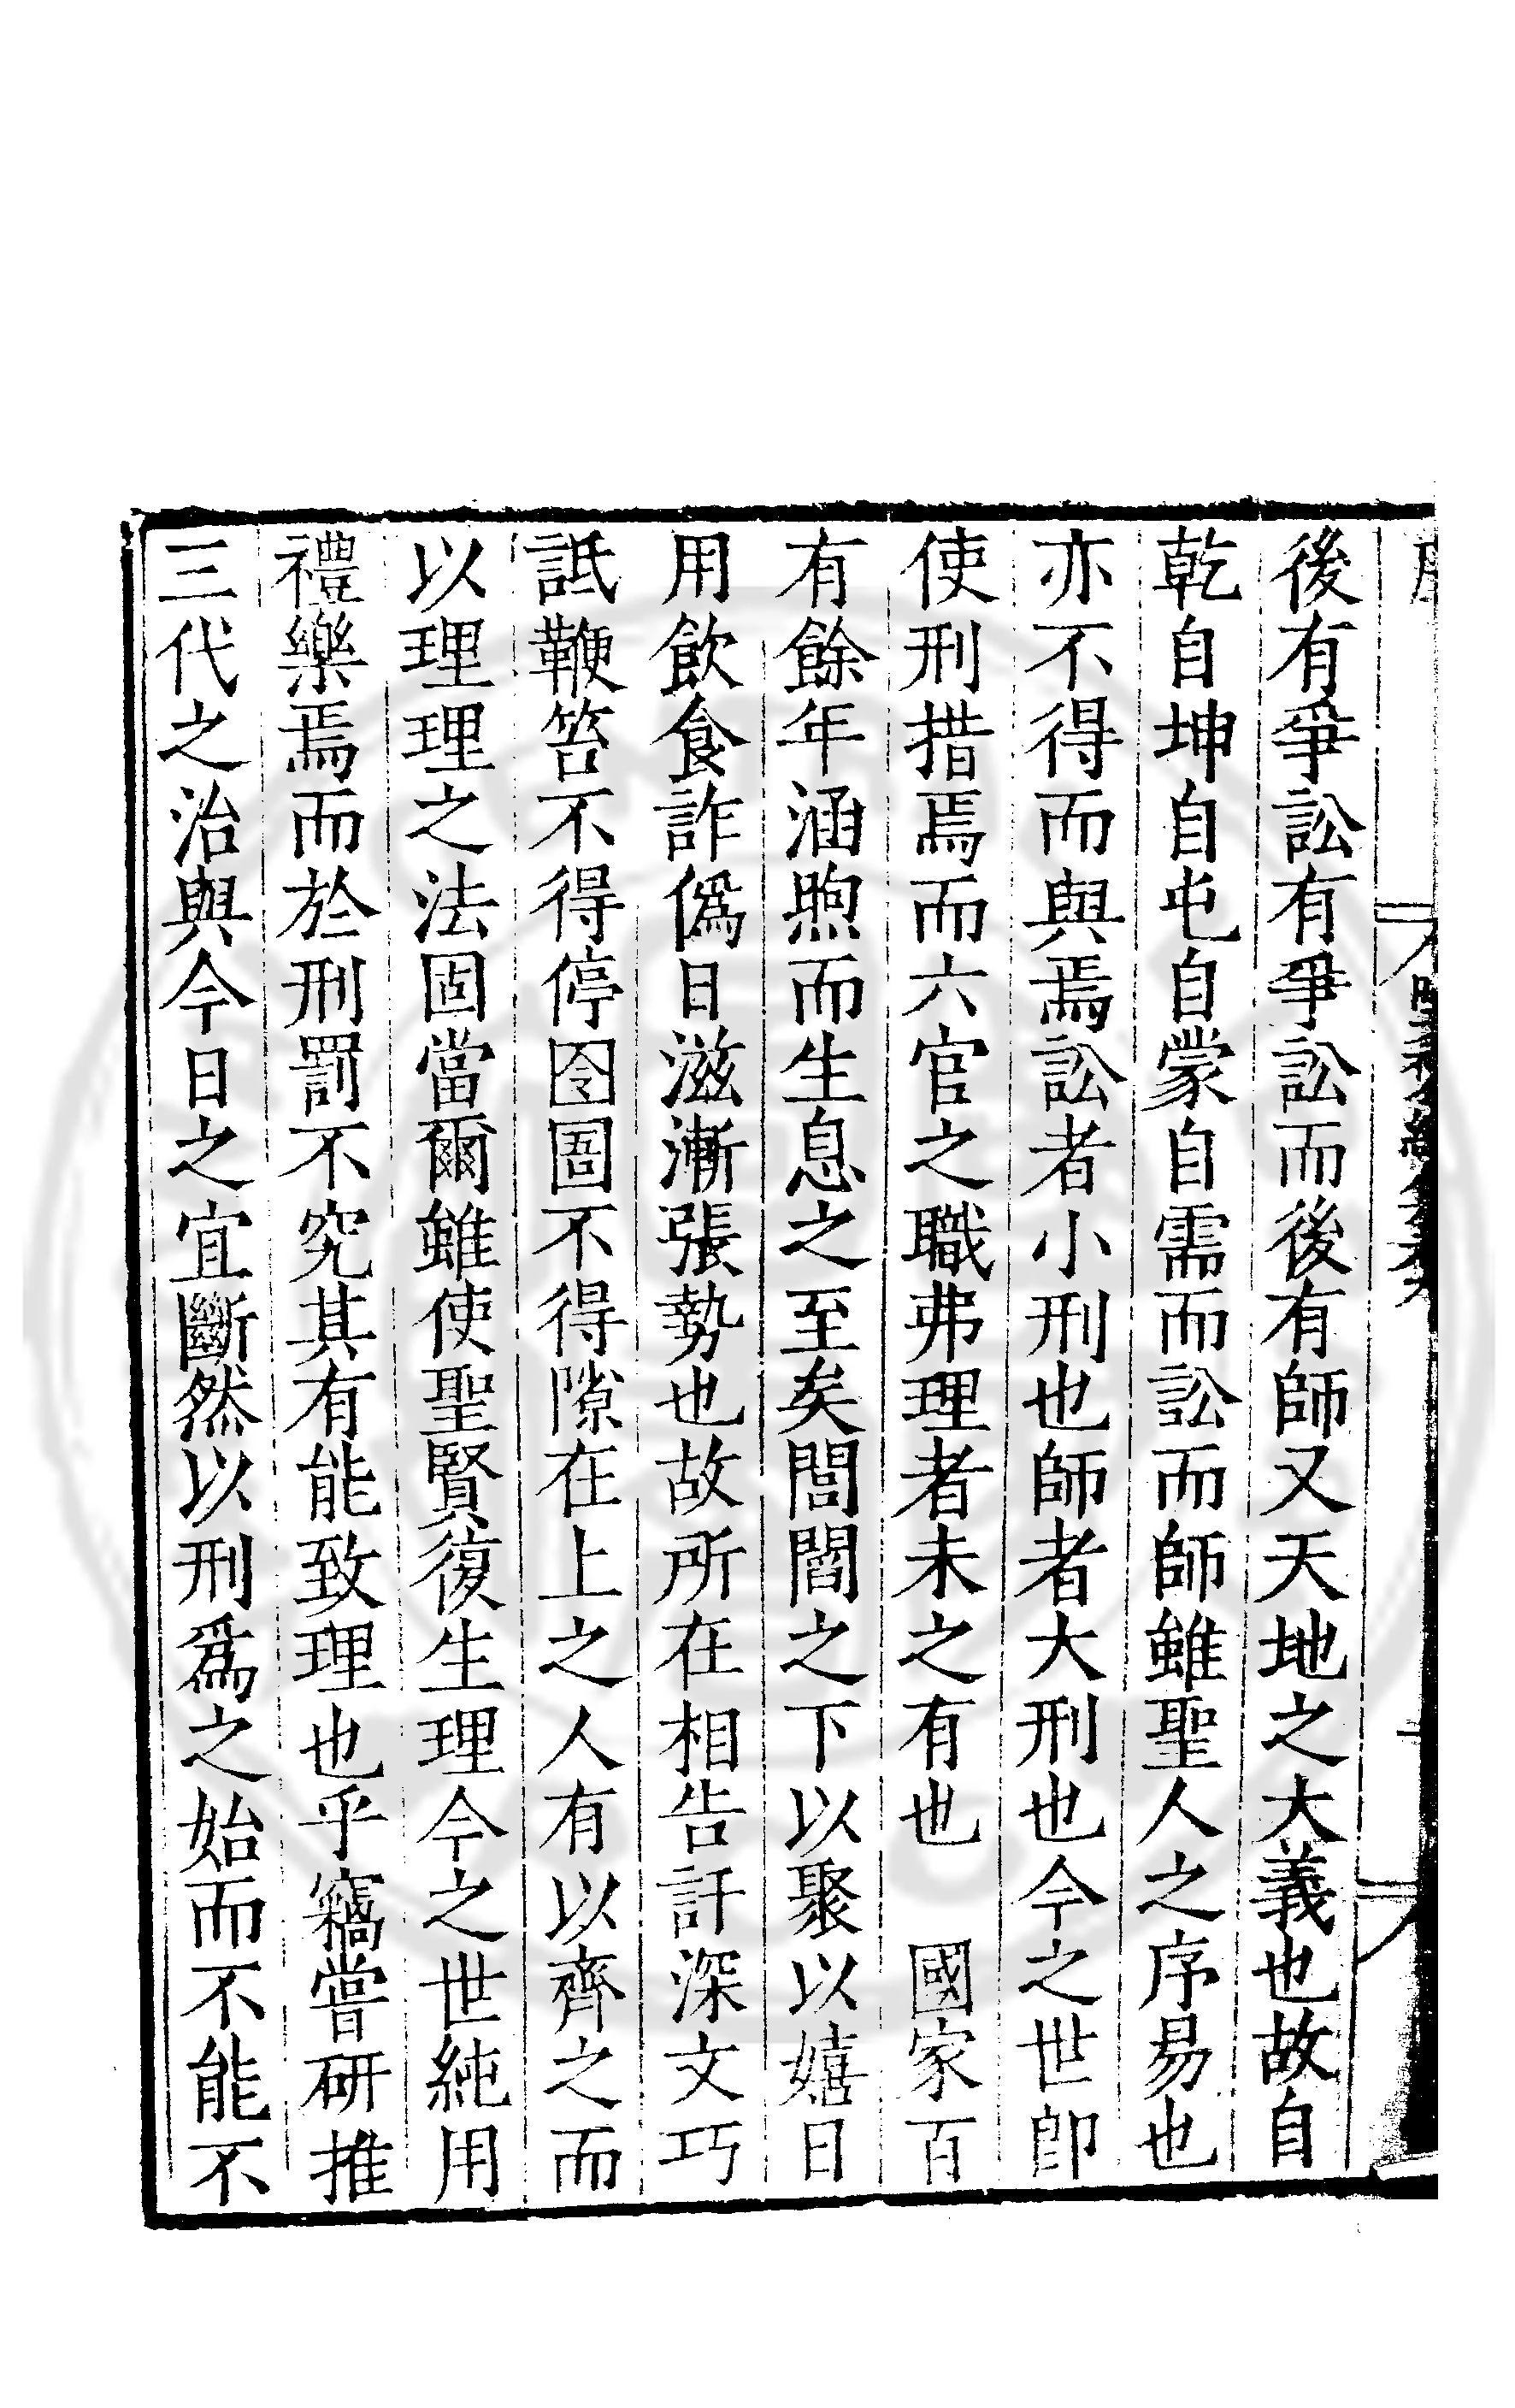 後有爭訟有爭訟而後有師又天地之大義也故自
乾自坤自屯自蒙自需而訟而師雖聖人之序易也
亦不得而與焉訟者小刑也師者大刑也今之世卽
使刑措焉而六官之職弗理者未之有也　國家百
有餘年涵煦而生息之至矣閭閻之下以聚以嬉日
用飲食詐僞日滋漸張勢也故所在相告訐深文巧
詆鞭笞不得停囹圄不得隙在上之人有以齊之而
以理理之法固當爾雖使聖賢復生理今之世純用
禮樂焉而於刑罰不究其有能致理也乎竊嘗研推
三代之治與今日之宜斷然以刑爲之始而不能不